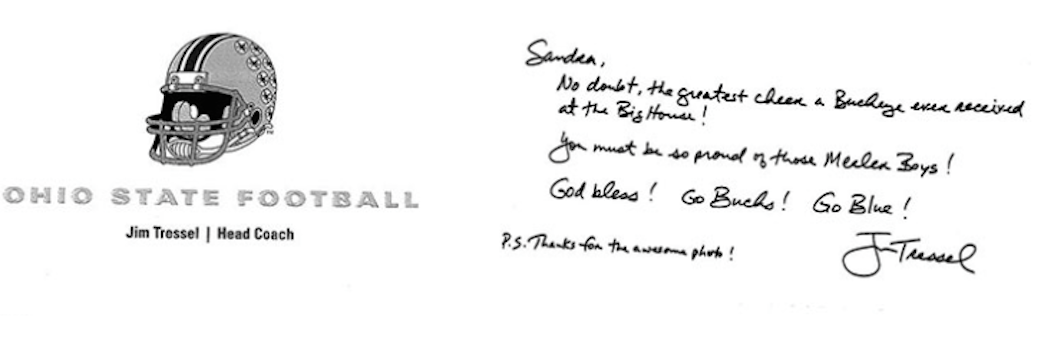 OHIO STATE FOOTBALL
Jim Tressel | Head Coach
Sandra,
No doubt, the greatest cheer a Buckeye ever received
at the Big House!
You must be so proud of those Meeler Boys!
God bless! Go Bucks! Go Blue!
P.S. Thanks for the awesome photo!
Jim Tressel